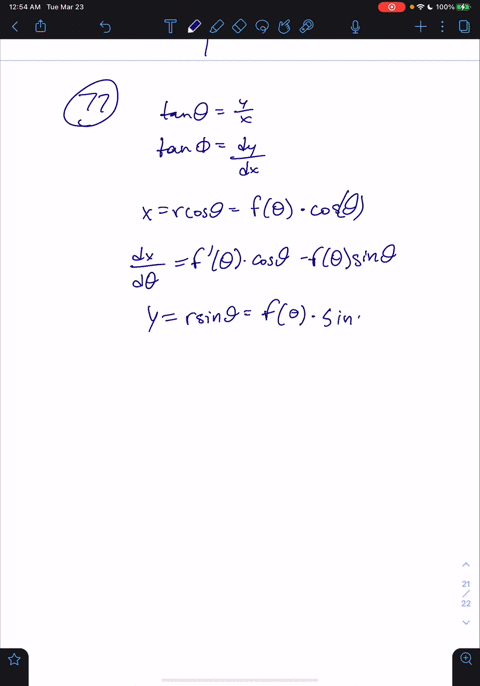 12:54 AM Tue Mar 23
100%
77
tanθ = y/x
tan Φ = dy/dx
x = rcosθ = f(θ) · cos(θ)
dx/dθ = f'(θ) · cosθ - f(θ) sinθ
y = rsinθ = f(θ) · sin
21
/
22